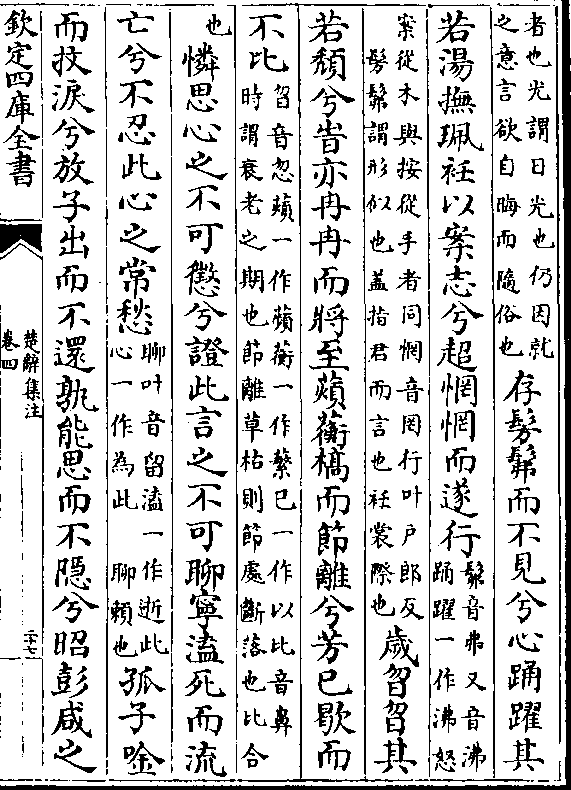 者也光謂日光也仍因就
之意言欲自晦而隨俗也
存髣髴而不見兮心踊躍其
若湯撫珮衽以案志兮超惘惘而遂行
髴音弗又音沸
踊躍一作沸怒
案從木與按從手者同惘音罔行叶户郎反
髣髴謂形似也蓋指君而言也衽裳際也
歲曶曶其
若頽兮旹亦冉冉而將至薠蘅槁而節離兮芳已歇而
不比
曶音忽薠一作蘋蘅一作蘩已一作以比音鼻
時謂衰老之期也節離草枯則節處斷落也比合
也
憐思心之不可懲兮證此言之不可聊寧溘死而流
亡兮不忍此心之常愁
聊叶音留溘一作逝此
心一作為此 聊賴也
孤子唫
而抆淚兮放子出而不還孰能思而不隱兮昭彭咸之
欽定四庫全書
楚辭集注
卷四
二十七